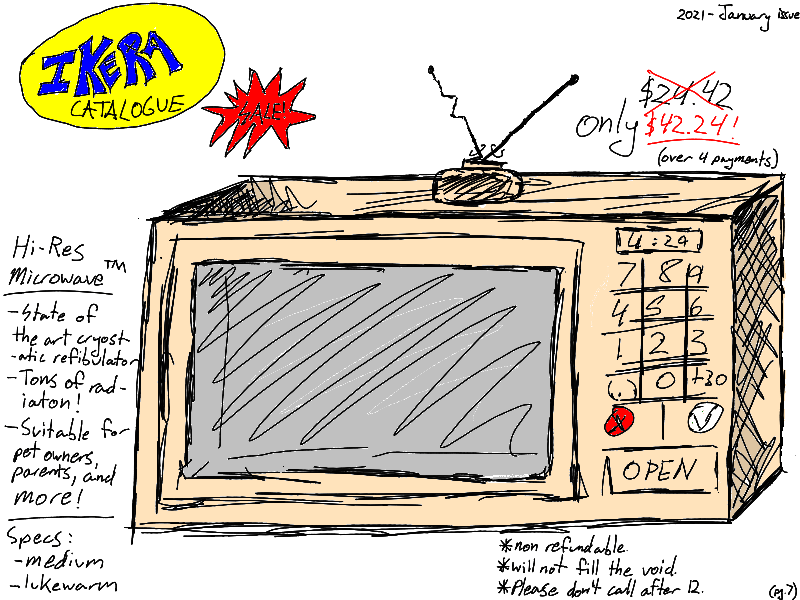 2021 - January issue
IKERA
CATALOGUE
SALE!
$24.42
only $42.24!
(over 4 payments)
Hi-Res
Microwave™
- State of
the art cryost
-atic refibulator
- Tons of rad-
iaton!
- Suitable for
pet owners,
parents, and
more!
Specs:
- medium
- lukewarm
4:24
7 8 9
4 5 6
1 2 3
0 +30
X
OPEN
*non refundable.
*will not fill the void.
*Please don't call after 12.
(pg.7)